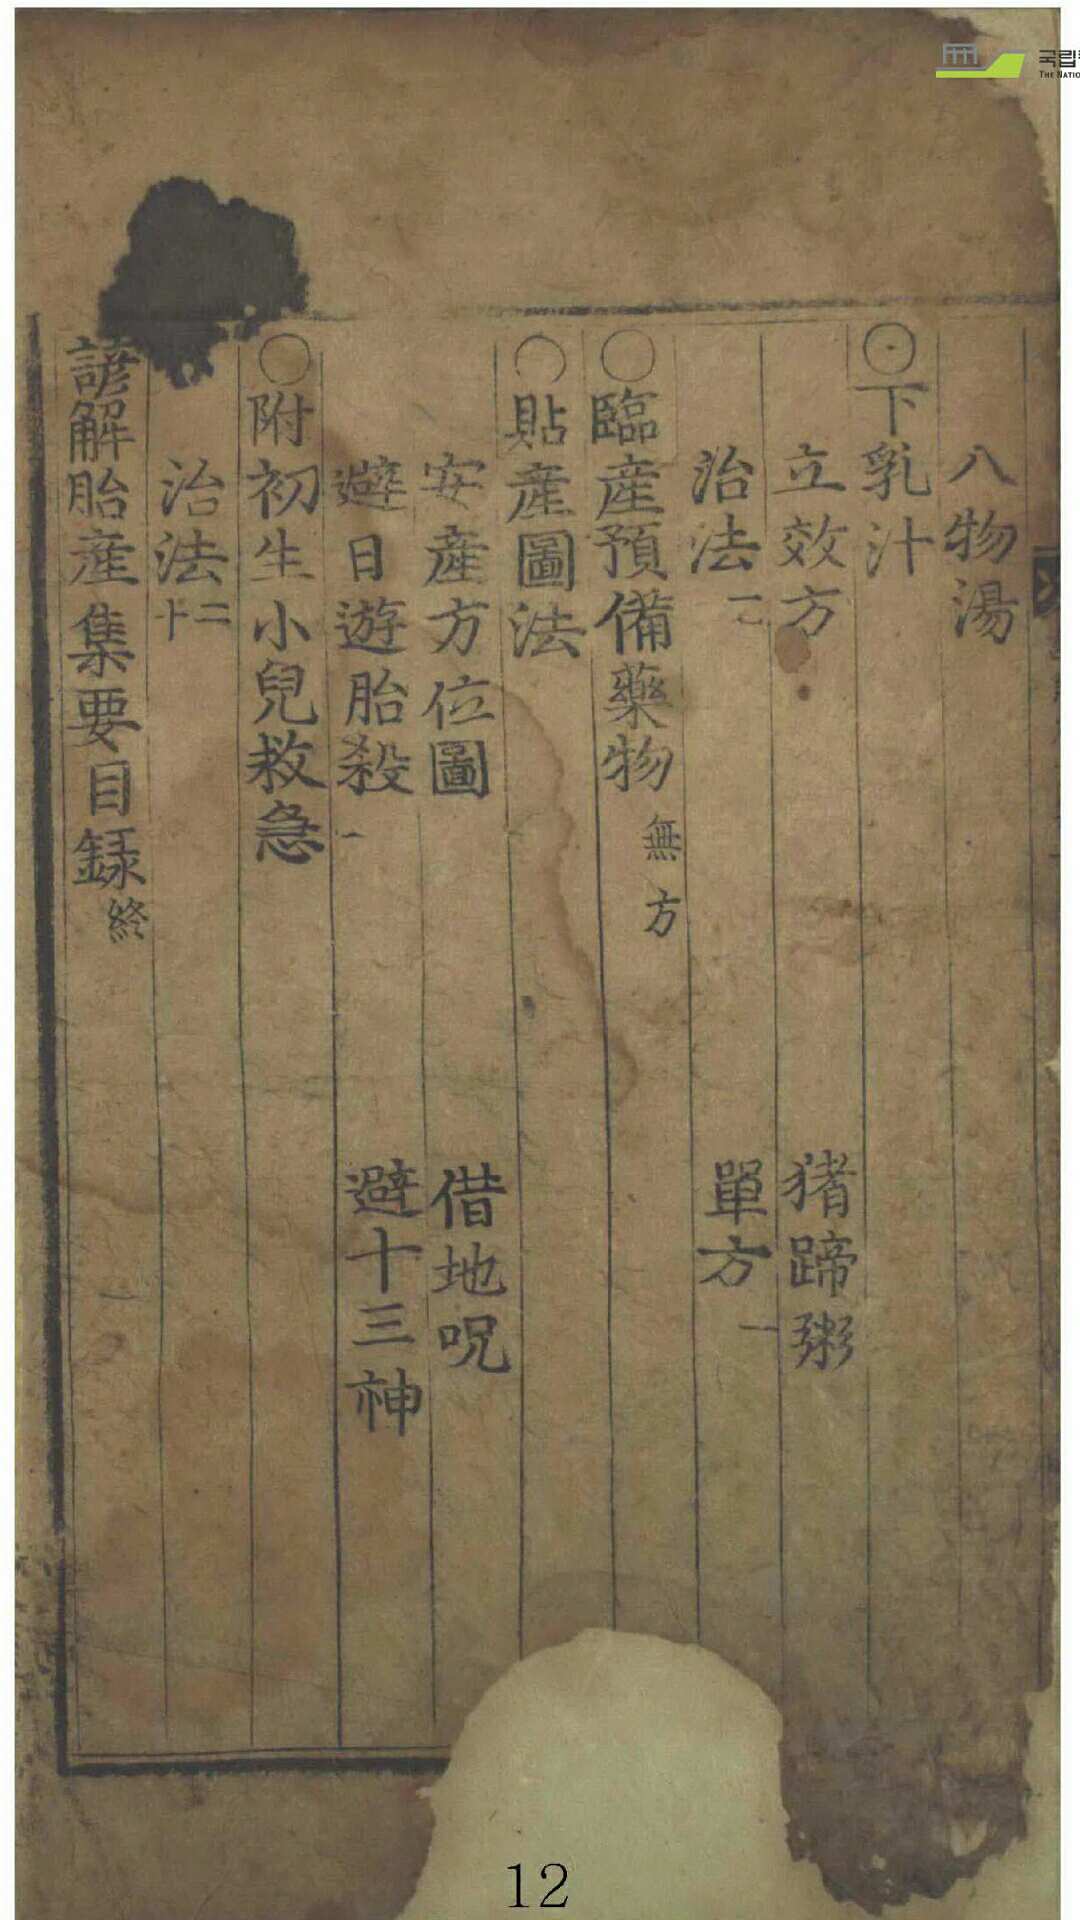 八物湯
下乳汁
立效方 猪蹄粥
治法 單方一
臨産預備藥物 無方
貼産圖法
安産方位圖 借地呪
避日遊胎殺 避十三神
附初生小兒救急
治法十二
諺解胎産集要目録 終
국립
THE NATIO
12